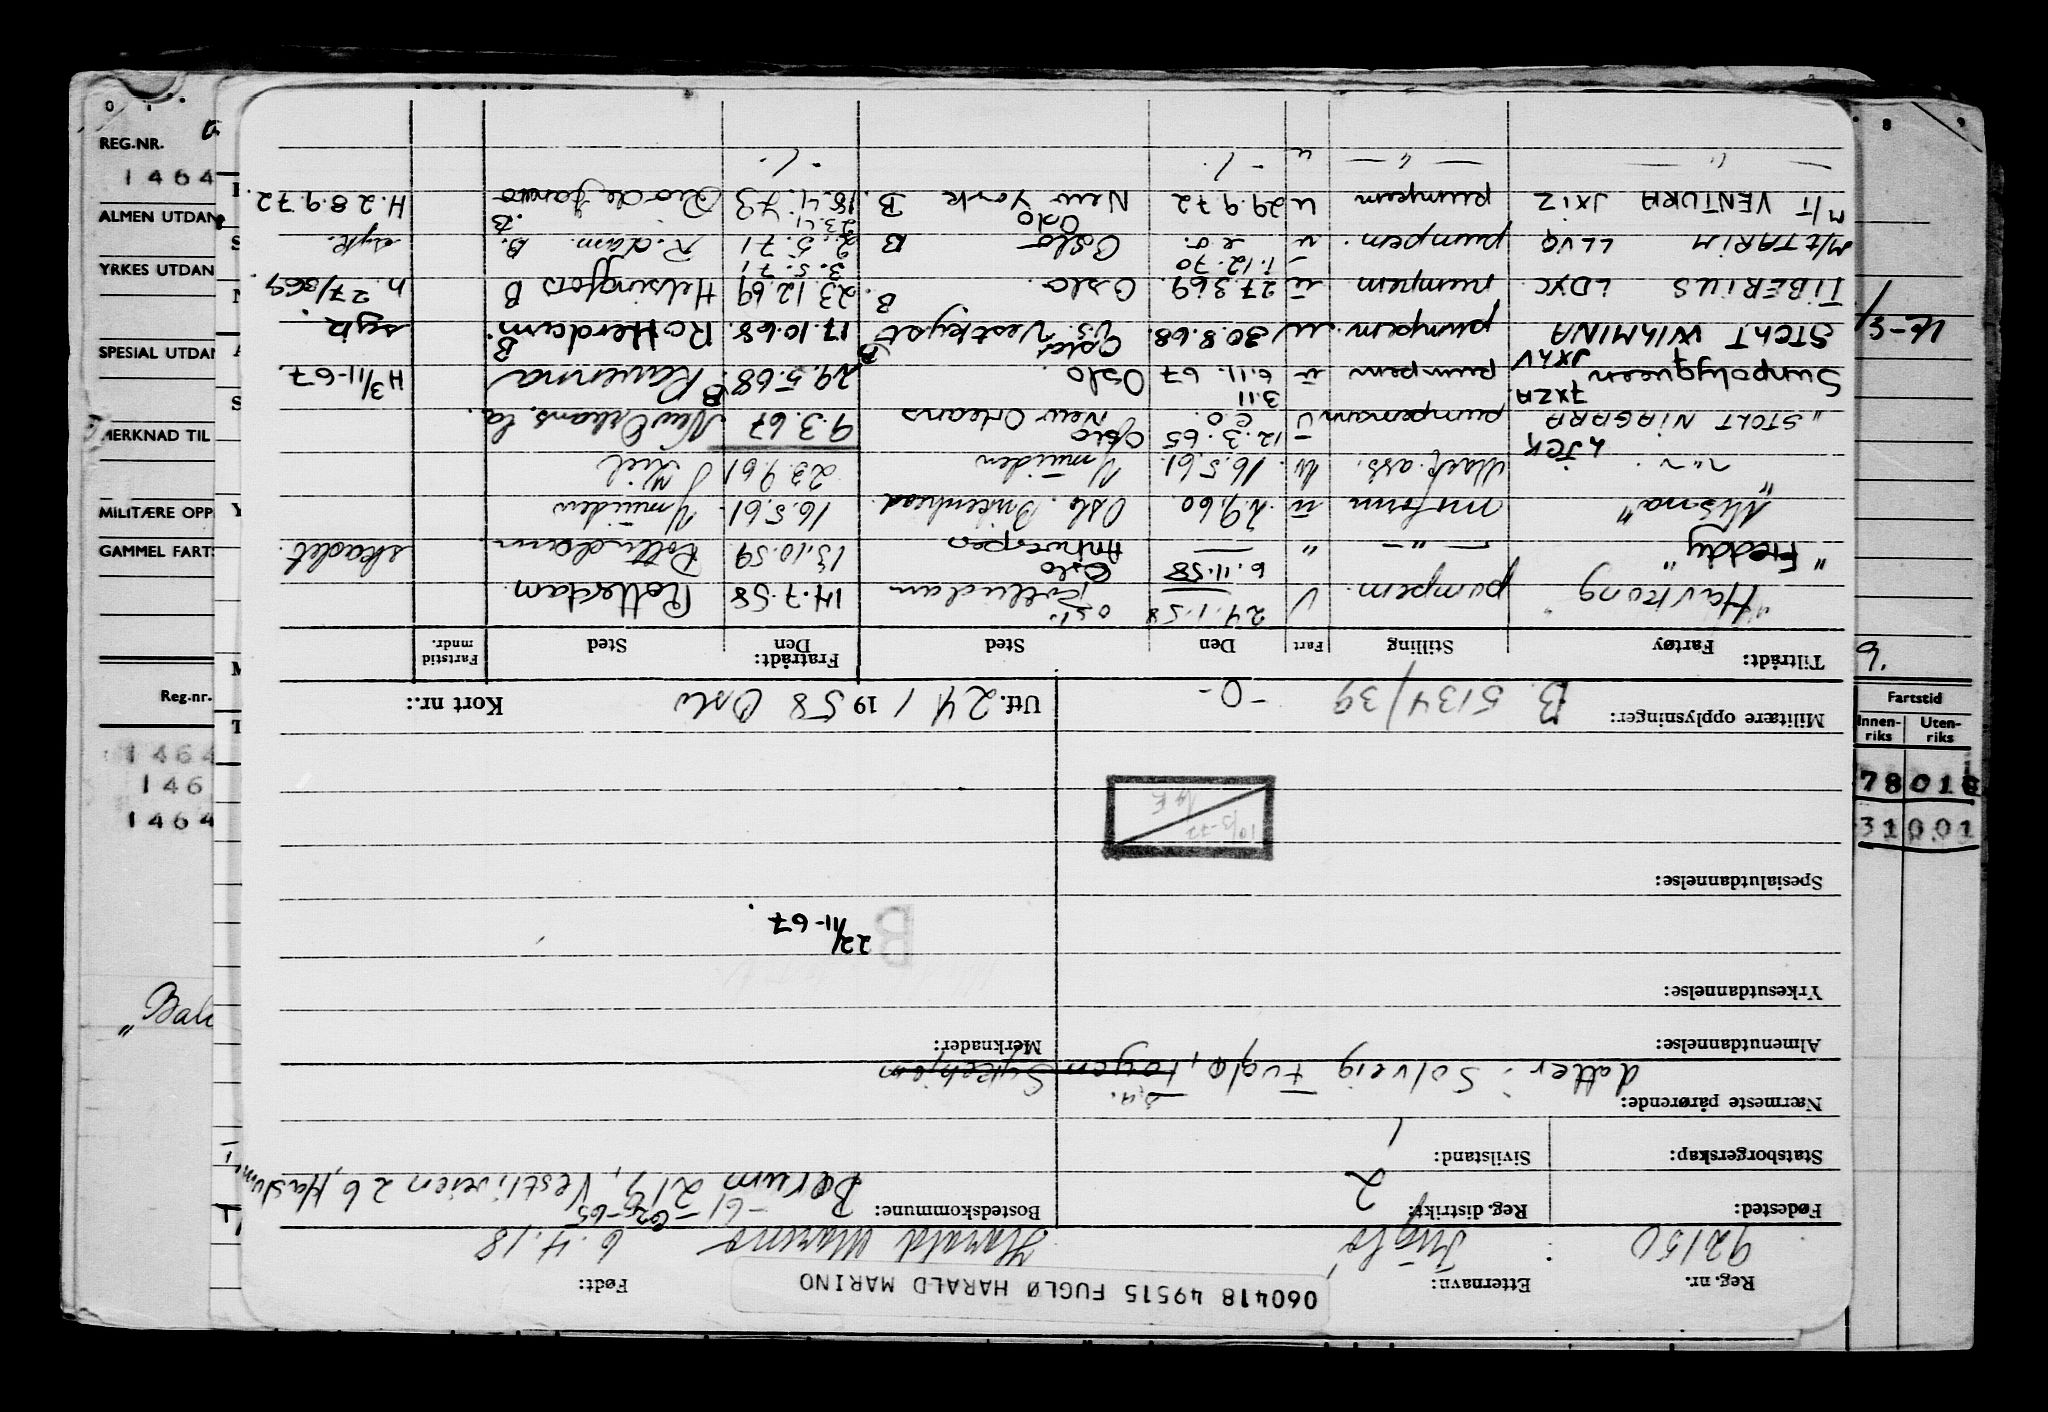 060418 49515 FUGLØ HARALD MARINO
Reg. nr. Etternavn: Født:
92150 Fuglø Harald Marino 6.4.18
Fødested: Reg. distrikt: 2 Bostedskommune: Bærum 219, Vestliveien 26, Haslum
-61 -65
Statsborgerskap: Sivilstand: 1
Nærmeste pårørende:
datter: Solveig Fuglø, Tøyen Sykehjem
Almenutdannelse: Merknader:
Yrkesutdannelse:
B 22/11-67
Spesialutdannelse:
10/3-72
Militære opplysninger: B. 5134/39 -0- Utf. 24/1 1958 Oslo Kort nr.:
Tiltrådt: Fratrådt:
Fartøy Stilling Fart Den Sted Den Sted Fartstid mndr.
"Havkong" pumpem. U 24.1.58 Rotterdam 14.7.58 Rotterdam
"Freddy" — " — " 6.11.58 Oslo Antwerpen 13.10.59 Rotterdam skadet.
"Misma" Oslo. Birkenhead 16.5.61 Ymuiden
" Mask.ass. U. 16.5.61. Ymuiden 23.9.61 Kiel
LJCK
"STOLT NIAGARA pumpemann U 12.3.65 e.o. Oslo New Orleans 9.3.67 New Orleans. La.
7XZA
Sunpolyqueen JXHV pumpem u 3.11 6.11.67 Oslo. B 29.5.68 Ravenna B H 3/11-67.
STOLT WIHMINA pumpem. u 30.8.68. Oslo U.S. Vestkyst 17.10.68 Rotterdam. B syk.
TIBERIUS LDYC pumpem u 27.3.69. Oslo. B. 23.12.69 Helsingfors B h. 27/369
M/t TARIM LLVQ pumpem. u 1.12.70 e o. Oslo B 3.5.71 2.5.71 R.dam. B. syk.
M/T VENTURA JXIZ pumpem u 29.9.72 Oslo New York B. 23.4. 18.4.73 Rio de Janeiro B. H. 28.9.72.
— " — — " — u - / - - / -
REG.NR.
1464
ALMEN UTDAN
YRKES UTDAN
SPESIAL UTDAN
MERKNAD TIL
MILITÆRE OPP
GAMMEL FARTS
Reg-nr.
1464
146
1464
"Bali
Fartstid
Innen-riks Uten-riks
78 018
31 001